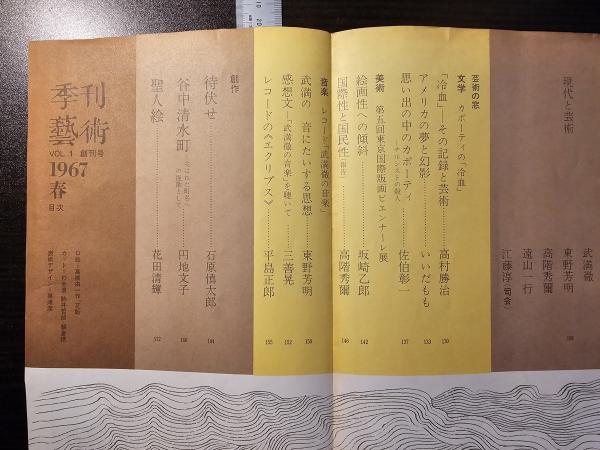 現代と芸術
武満徹
東野芳明
高階秀爾
遠山一行
江藤淳(司会)
芸術の窓
文学 カポーティの「冷血」
「冷血」―その記録と芸術 高村勝治 130
アメリカの夢と幻影 いいだもも 133
思い出の中のカポーティ 佐伯彰一 137
美術 第五回東京国際版画ビエンナーレ展
絵画性への傾斜 坂崎乙郎 142
国際性と国民性 高階秀爾 146
音楽 レコード「武満徹の音楽」
武満の音にたいする思想 東野芳明 150
感想文―「武満徹の音楽」を聴いて 三善晃 152
レコードの《エクリプス》 平島正郎 155
創作
待伏せ 石原慎太郎
谷中清水町 円地文子
聖人絵 花田清輝
季刊
藝術
VOL.1 創刊号
1967
春
目次